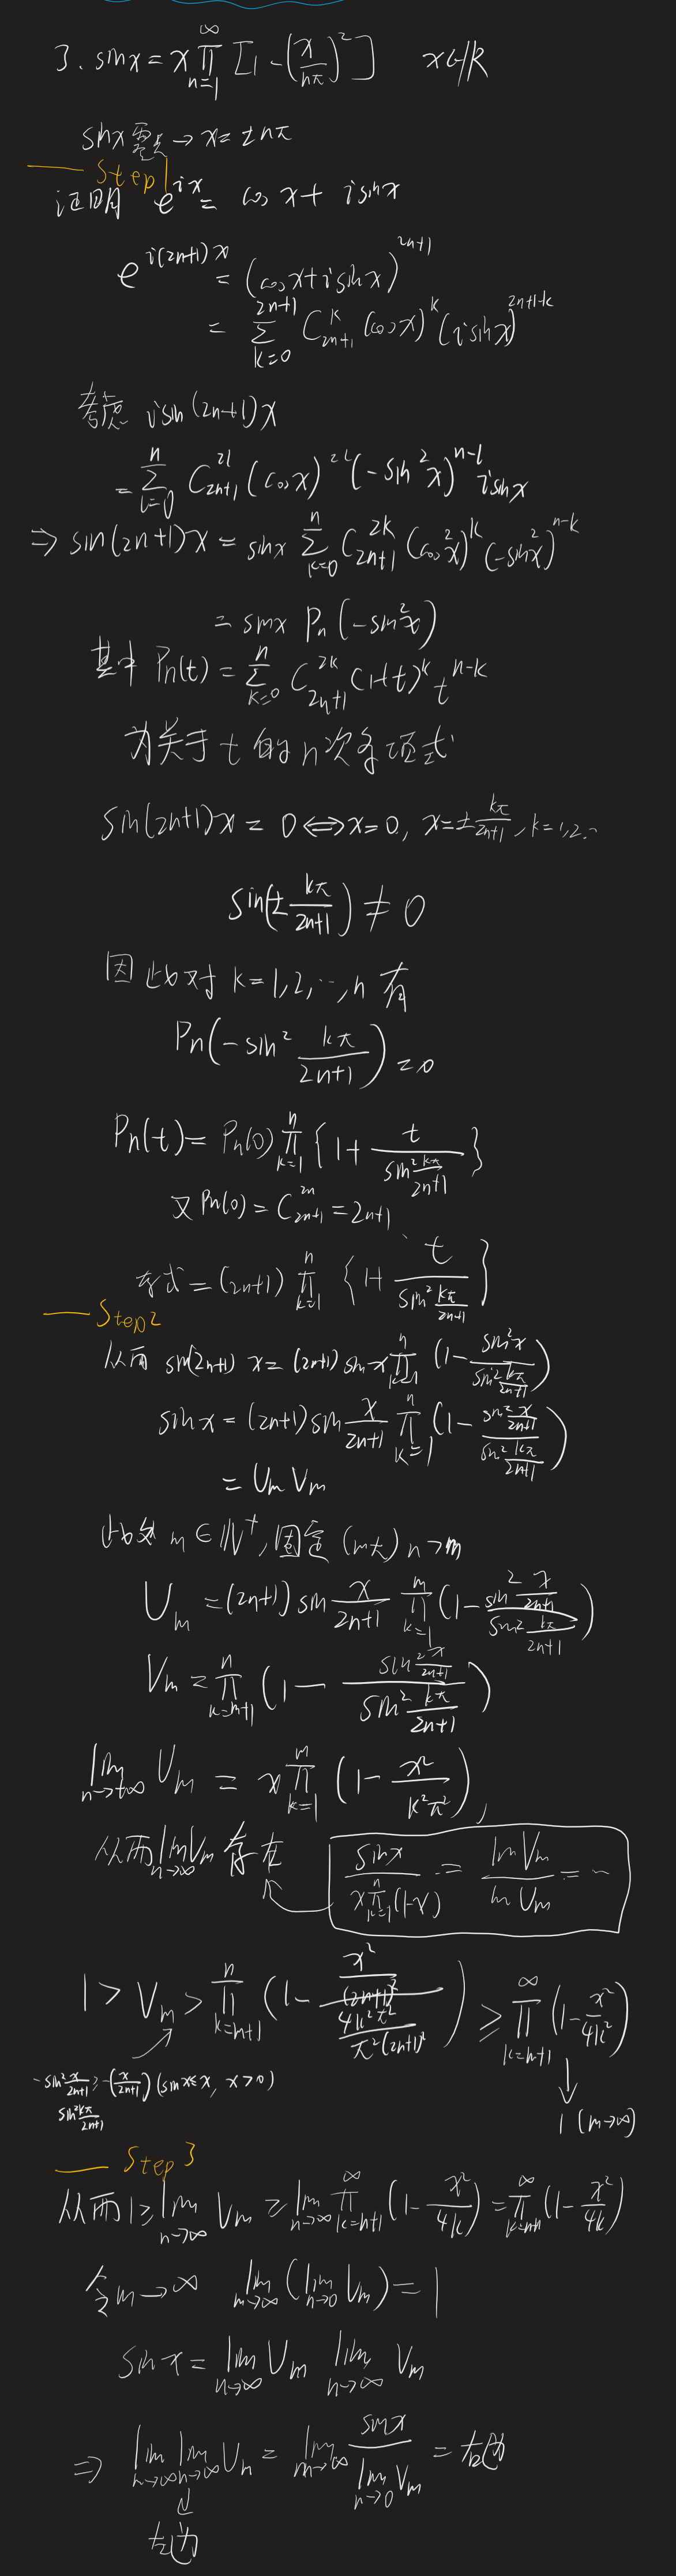 3. sinx = x ∏_{n=1}^{∞} [1 - (x/nπ)^2]   x∈ℝ
sinx 零点 → x = ±nπ
—— Step1
证明 e^{ix} = cos x + i sinx
e^{i(2n+1)x} = (cosx + i sinx)^{2n+1}
= ∑_{k=0}^{2n+1} C_{2n+1}^{k} (cosx)^k (i sinx)^{2n+1-k}
考虑 i sin(2n+1)x
= ∑_{l=0}^{n} C_{2n+1}^{2l} (cosx)^{2l} (-sin^2 x)^{n-l} i sinx
⇒ sin(2n+1)x = sinx ∑_{k=0}^{n} C_{2n+1}^{2k} (cos^2 x)^k (-sin^2 x)^{n-k}
= sinx Pn(-sin^2 x)
其中 Pn(t) = ∑_{k=0}^{n} C_{2n+1}^{2k} (1+t)^k t^{n-k}
为关于 t 的 n次多项式
sin(2n+1)x = 0 ⇔ x=0, x=± kπ/(2n+1), k=1,2..
sin(± kπ/(2n+1)) ≠ 0
因此对 k=1,2,…,n 有
Pn(-sin^2 kπ/(2n+1)) = 0
Pn(t) = Pn(0) ∏_{k=1}^{n} {1 + t/(sin^2 kπ/(2n+1))}
又 Pn(0) = C_{2n+1}^{2n} = 2n+1
右式 = (2n+1) ∏_{k=1}^{n} {1+ t/(sin^2 kπ/(2n+1))}
—— Step2
从而 sin(2n+1)x = (2n+1) sinx ∏_{k=1}^{n} (1 - sin^2 x/(sin^2 kπ/(2n+1)))
sinx = (2n+1) sin x/(2n+1) ∏_{k=1}^{n} (1 - (sin^2 x/(2n+1))/(sin^2 kπ/(2n+1)))
= Um Vm
此处 m∈ℕ^+, 固定 (m大) n>m
Um = (2n+1) sin x/(2n+1) ∏_{k=1}^{m} (1 - (sin^2 x/(2n+1))/(sin^2 kπ/(2n+1)))
Vm = ∏_{k=m+1}^{n} (1 - (sin^2 x/(2n+1))/(sin^2 kπ/(2n+1)))
lim_{n→+∞} Um = x ∏_{k=1}^{m} (1 - x^2/(k^2π^2)),
从而 lim_{n→∞} Vm 存在
sinx/(x ∏_{k=1}^{n}(1-x)) = lim Vm/lim Um = …
1 > Vm > ∏_{k=m+1}^{n} (1 - (x^2/(2n+1)^2)/(4k^2π^2/(π^2(2n+1)^2))) ≥ ∏_{k=m+1}^{∞} (1 - x^2/4k^2)
(sinx≤x, x>0)
1 (m→∞)
—— Step 3
从而 1 ≥ lim_{n→∞} Vm ≥ lim_{n→∞} ∏_{k=m+1}^{∞} (1 - x^2/4k) = ∏_{k=m+1}^{∞} (1 - x^2/4k)
令 m→∞ lim_{m→∞} (lim_{n→0} Vm) = 1
sinx = lim_{n→∞} Um lim_{n→∞} Vm
⇒ lim_{m→∞} lim_{n→∞} Um = lim_{m→∞} sinx/(lim_{n→0} Vm) = 右边
左边